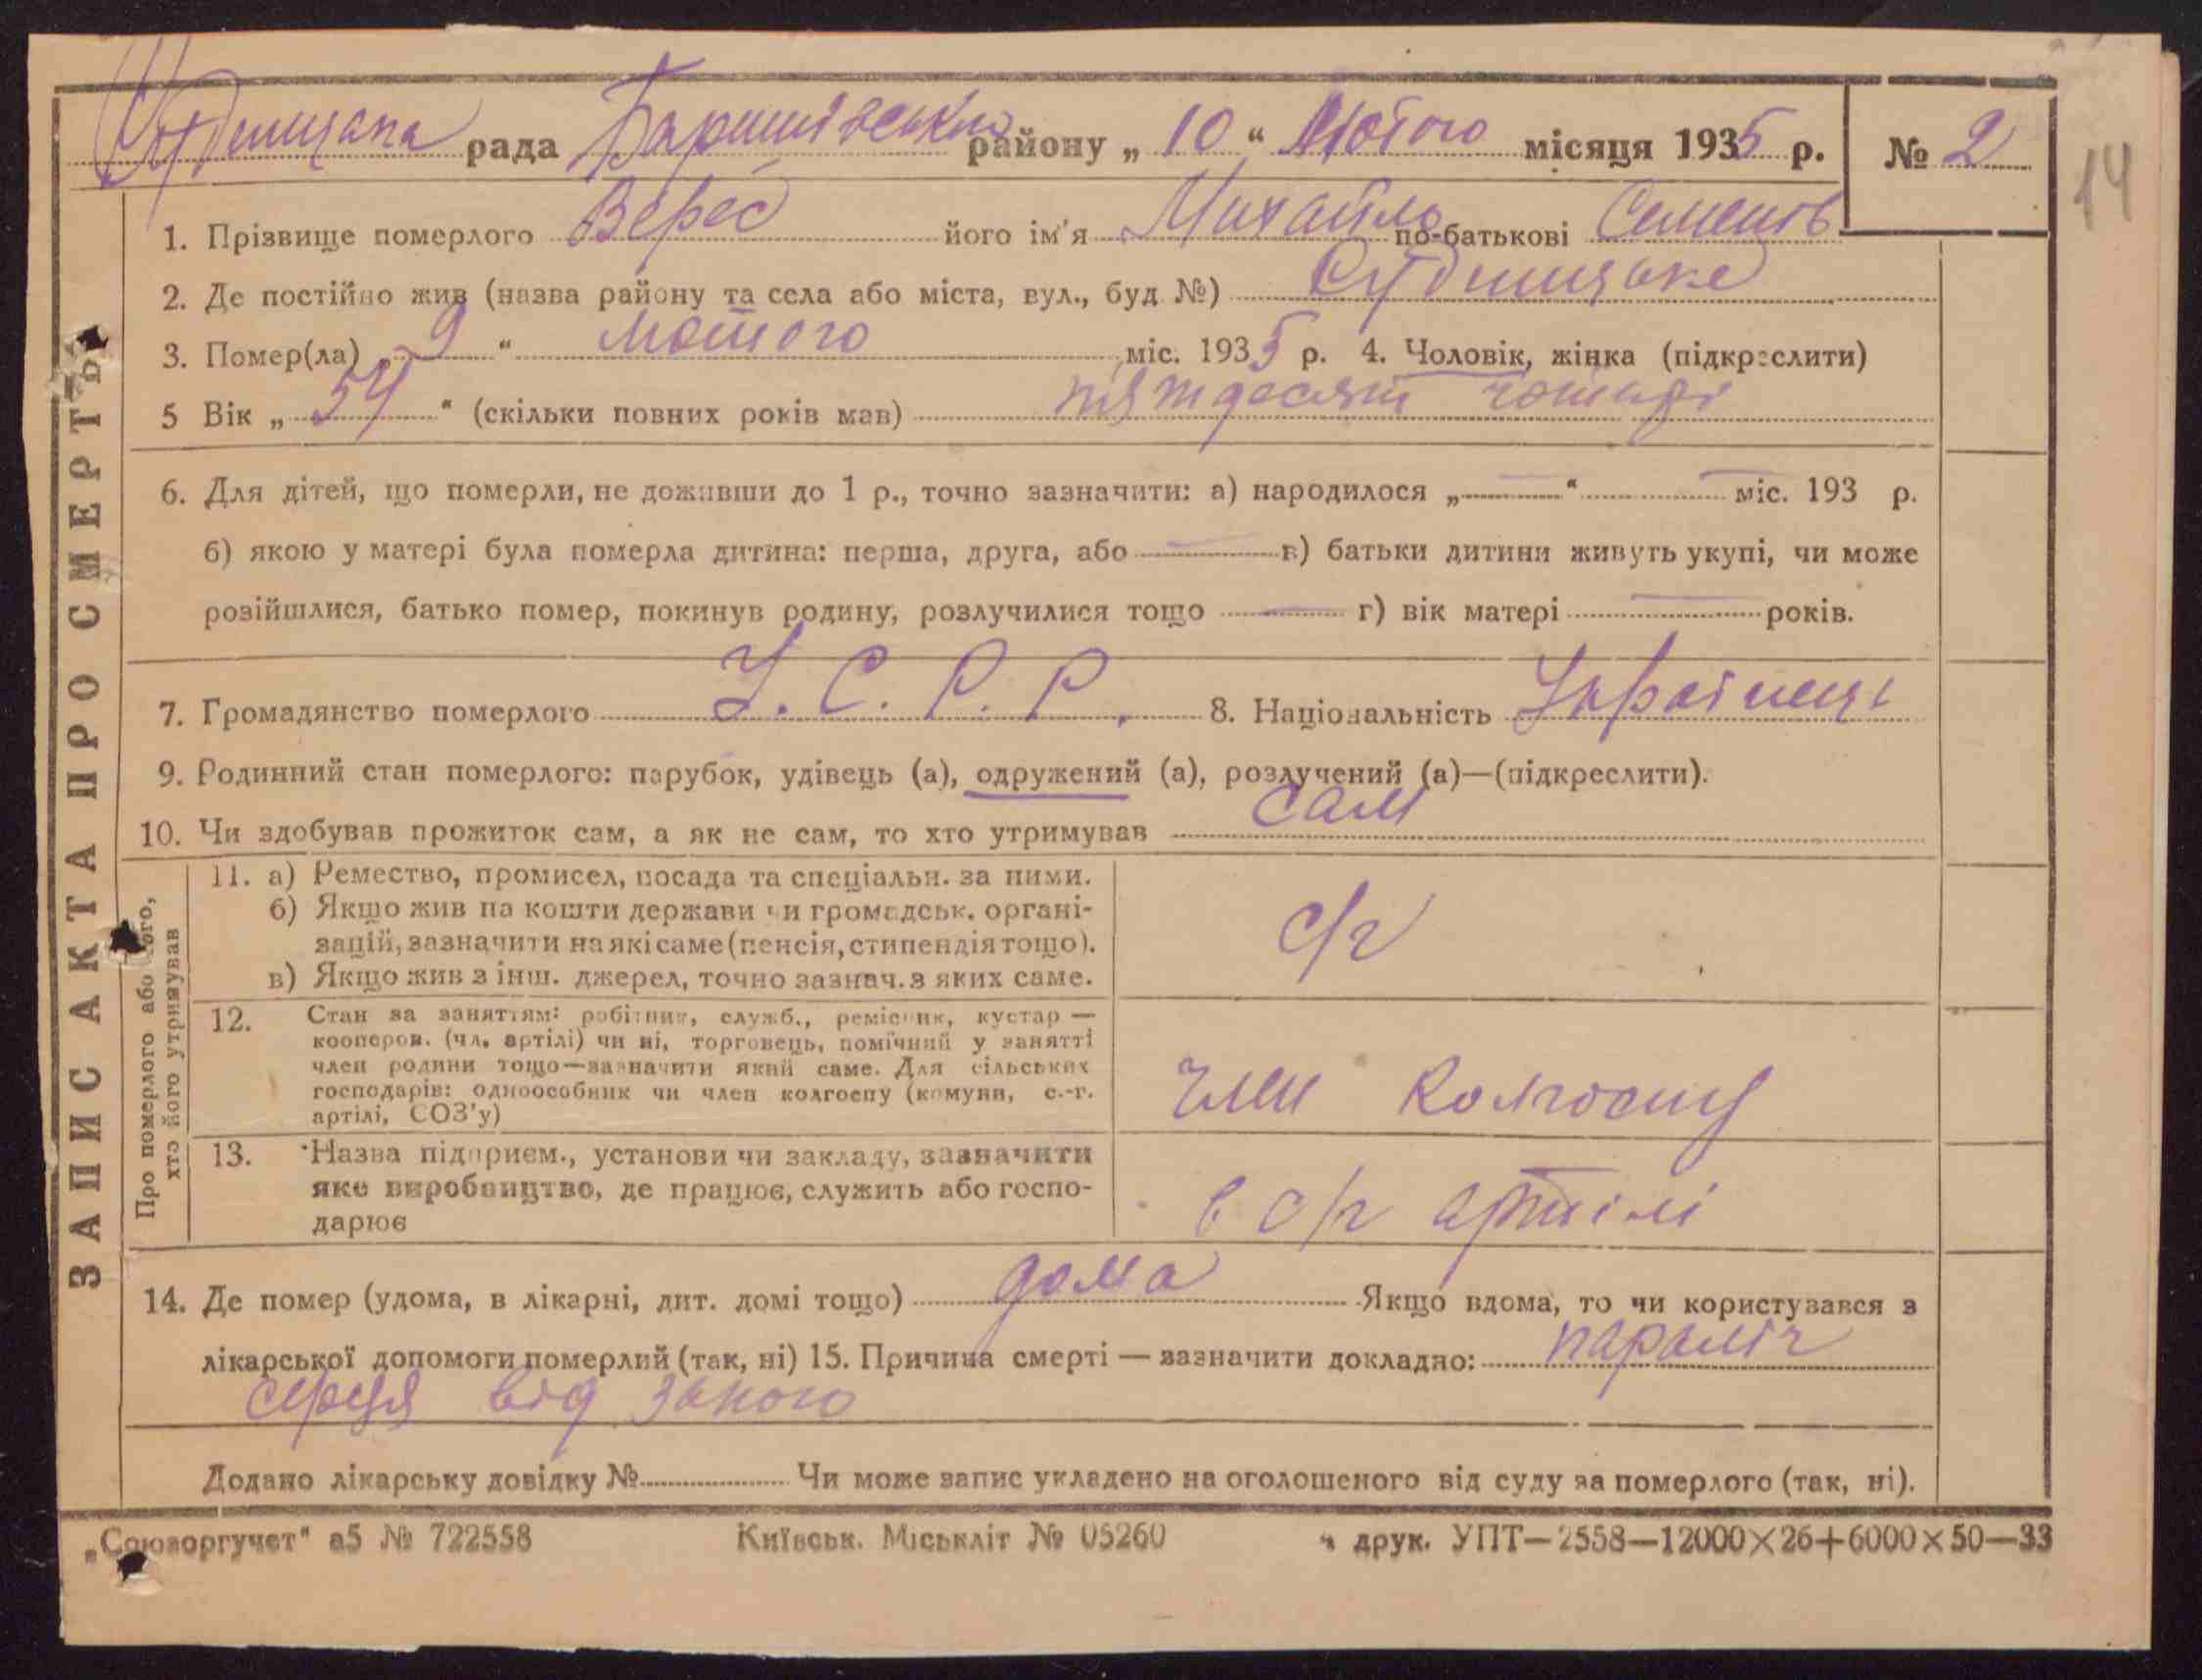 рада Баришівсько району „ 10 “ Лютого місяця 1935 р. № 2
14
ЗАПИС АКТА ПРО СМЕРТЬ
1. Прізвище померлого Верес його ім'я Михайло по-батькові Семенів
2. Де постійно жив (назва району та села або міста, вул., буд. №)
3. Помер(ла) „ 9 “ лютого міс. 1935 р. 4. Чоловік, жінка (підкреслити)
5 Вік „ 54 “ (скільки повних років мав) пятдесят чотирі
6. Для дітей, що померли, не доживши до 1 р., точно зазначити: а) народилося „ — “ — міс. 193 р.
б) якою у матері була померла дитина: перша, друга, або — в) батьки дитини живуть укупі, чи може
розійшлися, батько помер, покинув родину, розлучилися тощо — г) вік матері — років.
7. Громадянство померлого У.С.Р.Р. 8. Національність Українець
9. Родинний стан померлого: парубок, удівець (а), одружений (а), розлучений (а)—(підкреслити).
10. Чи здобував прожиток сам, а як не сам, то хто утримував сам
Про померлого або того,
хто його утримував
11. а) Ремество, промисел, посада та спеціальн. за ними.
б) Якщо жив на кошти держави чи громадськ. органі-
зацій, зазначити на які саме (пенсія, стипендія тощо).
в) Якщо жив з інш. джерел, точно зазнач. з яких саме.
с/г
12. Стан за заняттям: робітник, служб., ремісник, кустар —
кооперов. (чл. артілі) чи ні, торговець, помічний у занятті
член родини тощо—зазначити який саме. Для сільських
господарів: одноособник чи член колгоспу (комуни, с.-г.
артілі, СОЗ'у)
член колгоспу
13. Назва підприєм., установи чи закладу, зазначити
яке виробництво, де працює, служить або госпо-
дарює
в с/г артілі
14. Де помер (удома, в лікарні, дит. домі тощо) дома Якщо вдома, то чи користувався з
лікарської допомоги померлий (так, ні) 15. Причина смерті — зазначити докладно: параліч
серця від
Додано лікарську довідку № Чи може запис укладено на оголошеного від суду за померлого (так, ні).
„Союзоргучет“ а5 № 722558 Київськ. Міськліт № 05260 ч друк. УПТ—2558—12000×26+6000×50—33